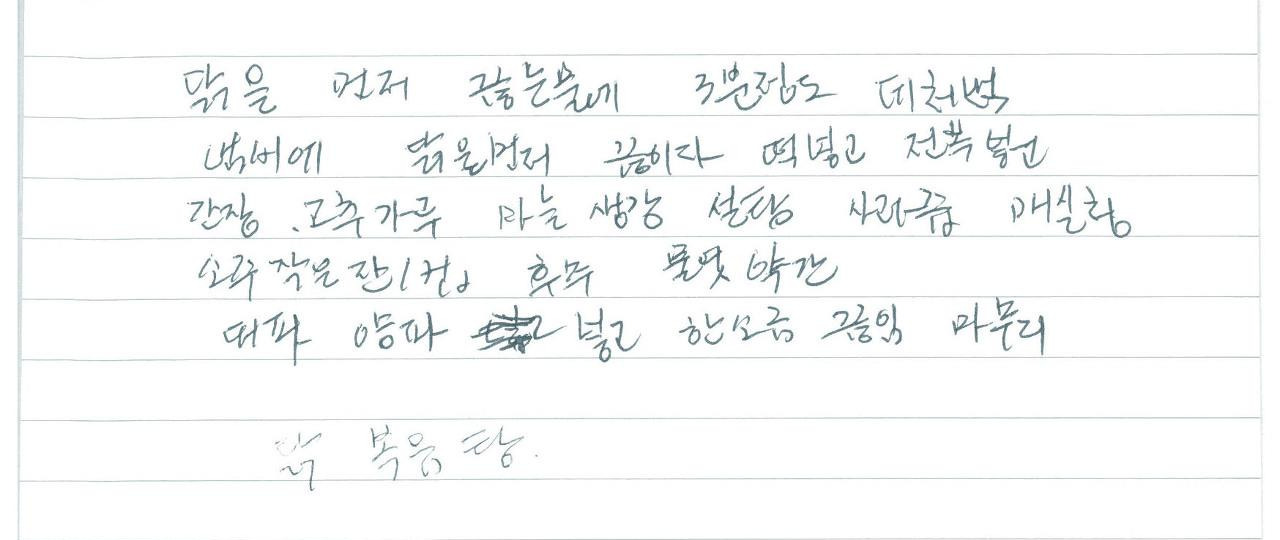 닭을 먼저 끓는물에 3분정도 데쳐내
냄비에 닭을먼저 끓이다 떡넣고 전복넣고
간장 .고추가루 마늘 생강 설탕 사과즙 매실청
소주작은잔1컵 후추 물엿 약간
대파 양파 넣고 한소금 끓임 마무리
닭 복음탕.